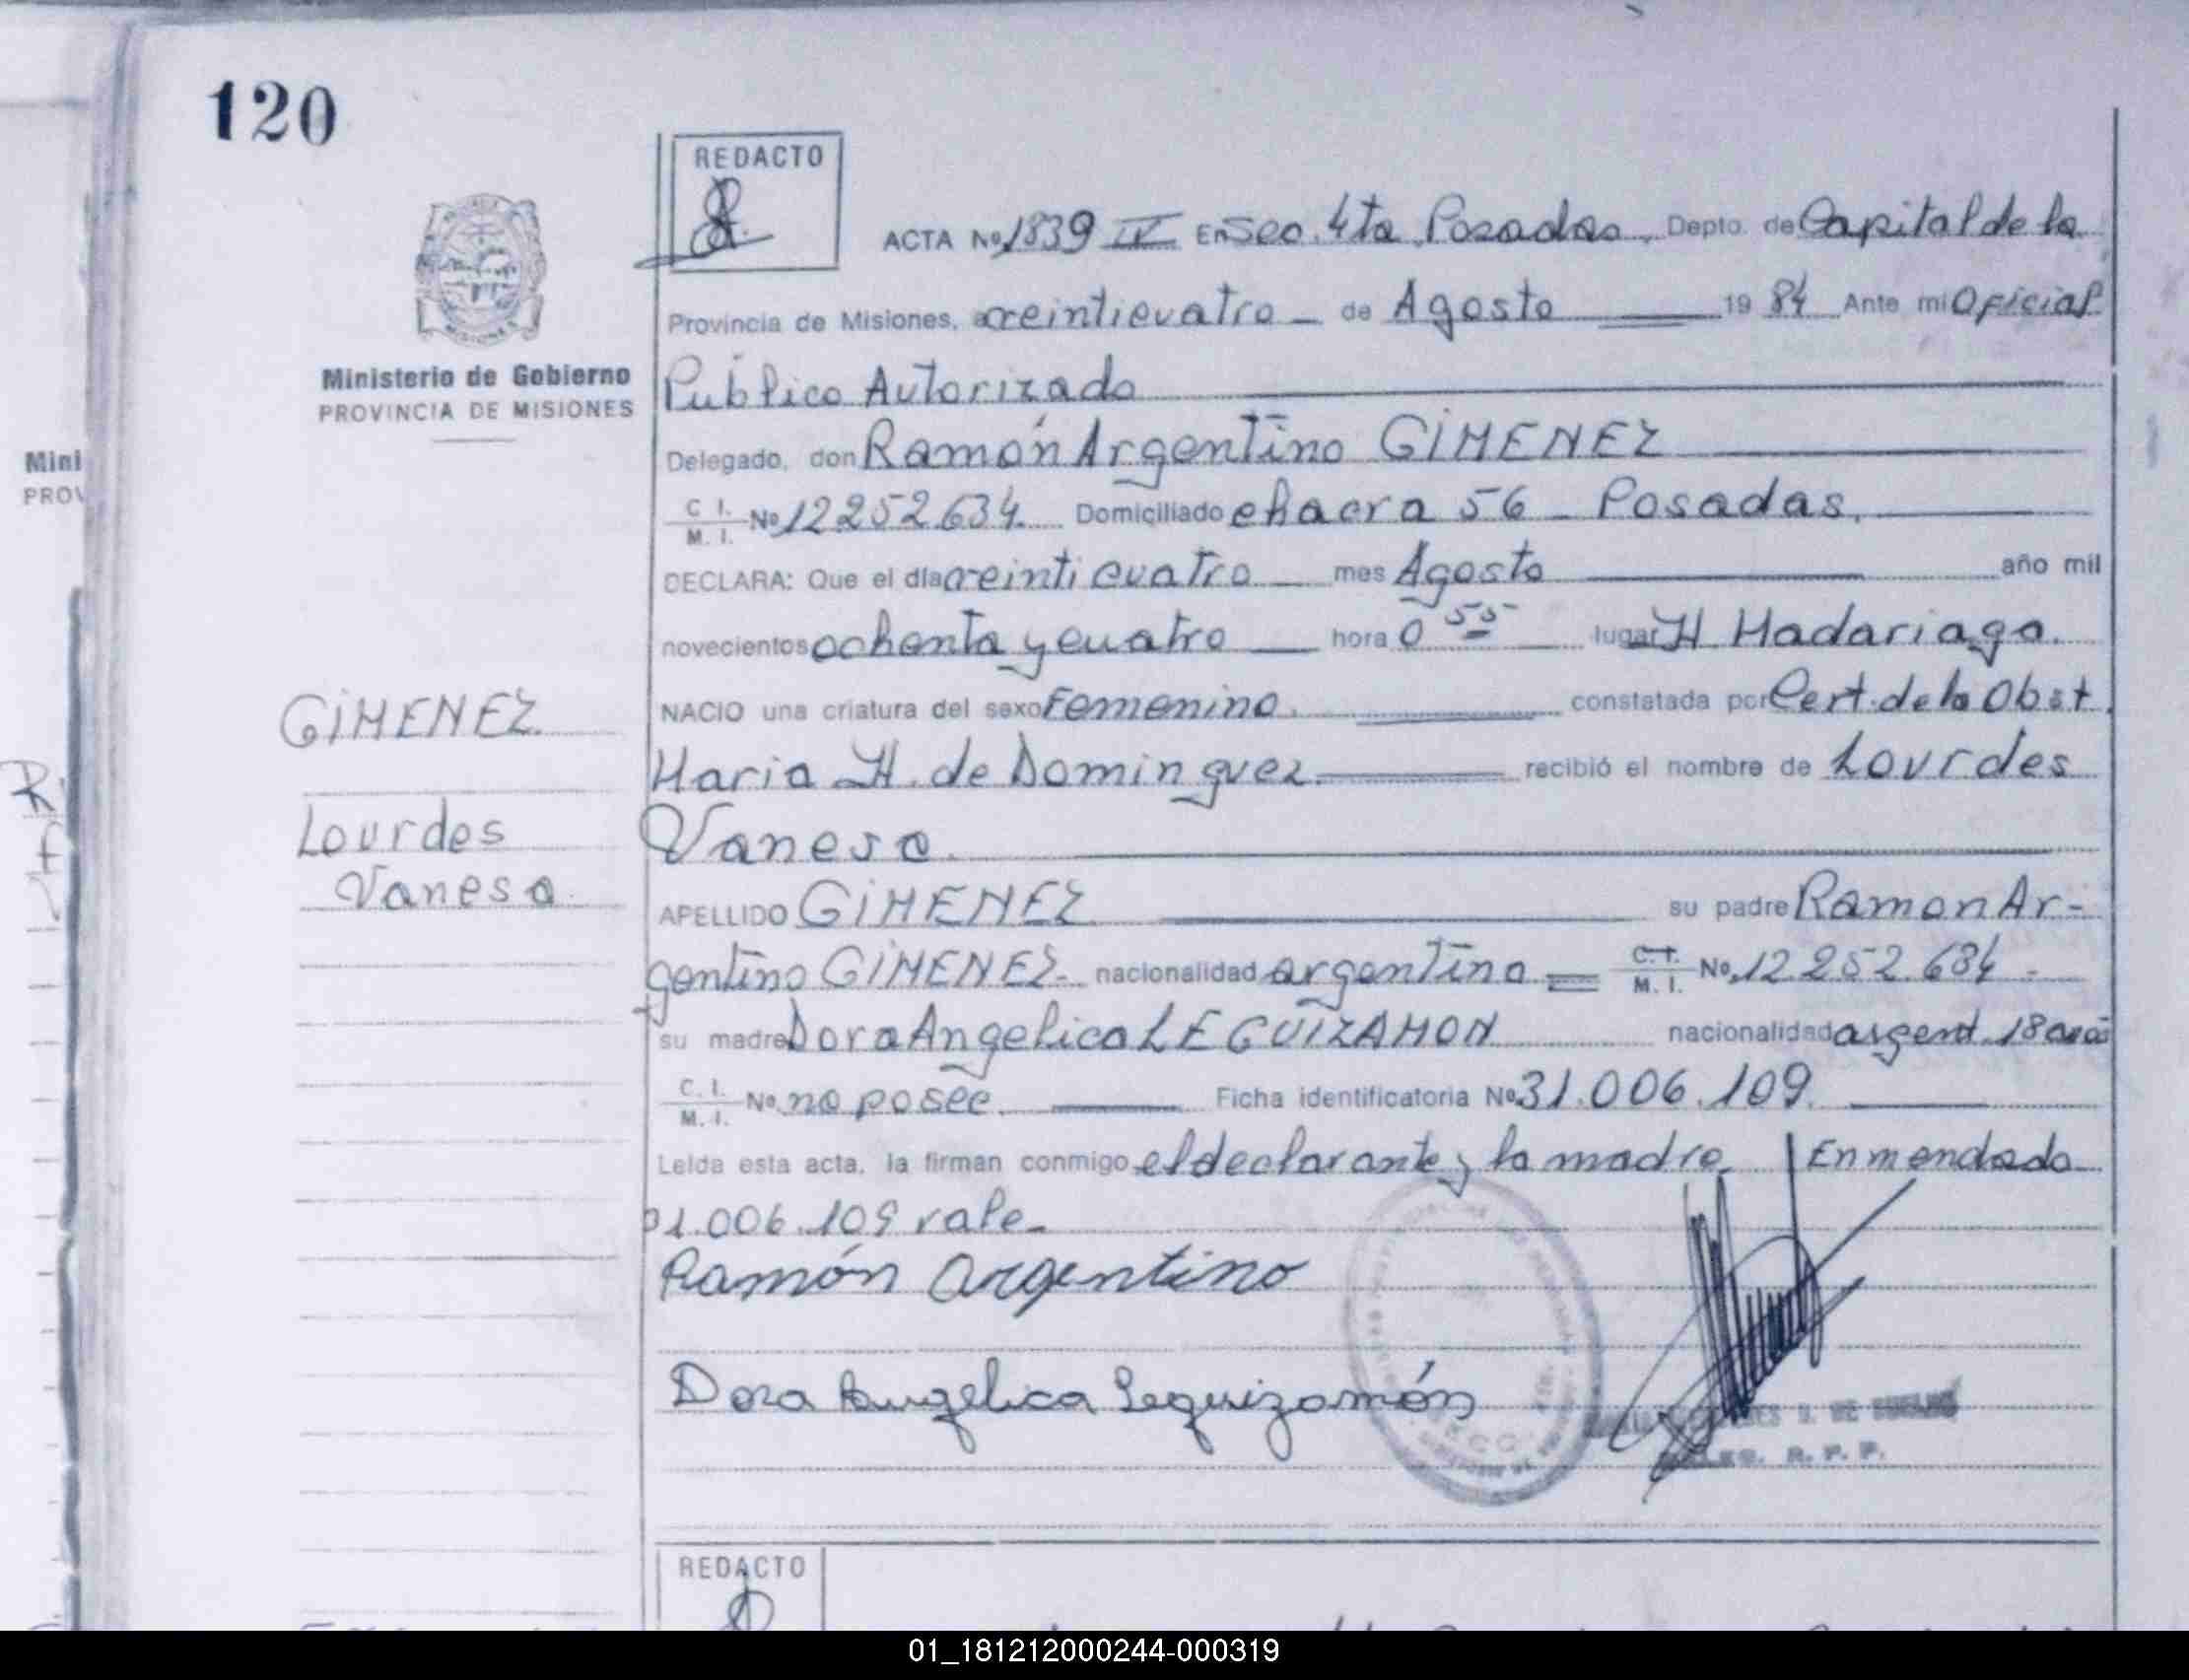 120
REDACTO
ACTA Nº 1839 IV En Sec. 4ta Posadas, Depto. de Capital de la
Provincia de Misiones, a veinticuatro - de Agosto 19 84 Ante mi Oficial
Ministerio de Gobierno
PROVINCIA DE MISIONES
Público Autorizado
Delegado, don Ramón Argentino GIMENEZ
C. I. M. I. Nº 12252.634. Domiciliado chacra 56 - Posadas.
DECLARA: Que el día veinticuatro mes Agosto año mil
novecientos ochenta y cuatro hora 0 55 lugar H. Madariaga.
NACIO una criatura del sexo Femenino. constatada por Cert. de la Obst.
Maria H. de Dominguez recibió el nombre de Lourdes
Vanesa.
APELLIDO GIMENEZ su padre Ramon Ar-
gentino GIMENEZ- nacionalidad argentina = C.I. M. I. Nº 12252.634 -
su madre Dora Angelica LEGUIZAMON nacionalidad argent. 18 años
C. I. M. I. Nº no posee. Ficha identificatoria Nº 31.006.109.
Leída esta acta, la firman conmigo el declarante y la madre. Enmendado
31.006.109 vale-
Ramón Argentino
Dora Angelica Leguizamón
R. P. P.
GIMENEZ
Lourdes
Vanesa.
Mini
PROV
REDACTO
01_181212000244-000319